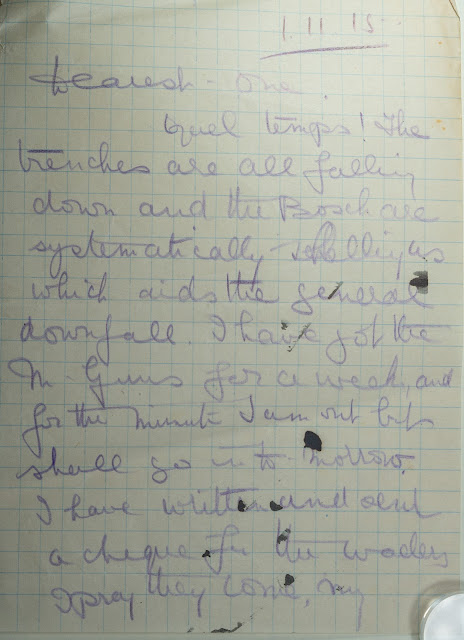 1.11.15
Dearest-One
Quel temps! The
trenches are all falling
down and the Bosch are
systematically shelling us
which aids the general
downfall. I have got the
M. Guns for a week, and
for the minute I am out but
shall go in to-morrow.
I have written and sent
a cheque for the waders
I pray they come, my